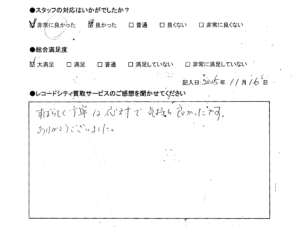 ●スタッフの対応はいかがでしたか？
☑非常に良かった ☑良かった □普通 □良くない □非常に良くない
●総合満足度
☑大満足 □満足 □普通 □満足していない □非常に満足していない
記入日:2015年 11月16日
●レコードシティ買取サービスのご感想を聞かせてください
すばらしく丁寧な応対で気持ち良かったです。
ありがとうございました。